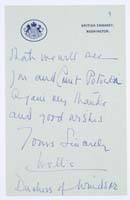 9
BRITISH EMBASSY,
WASHINGTON.
that we will see
you and Aunt
Again my thanks
and good wishes
Yours Sincerely
Wallis
Duchess of Windsor